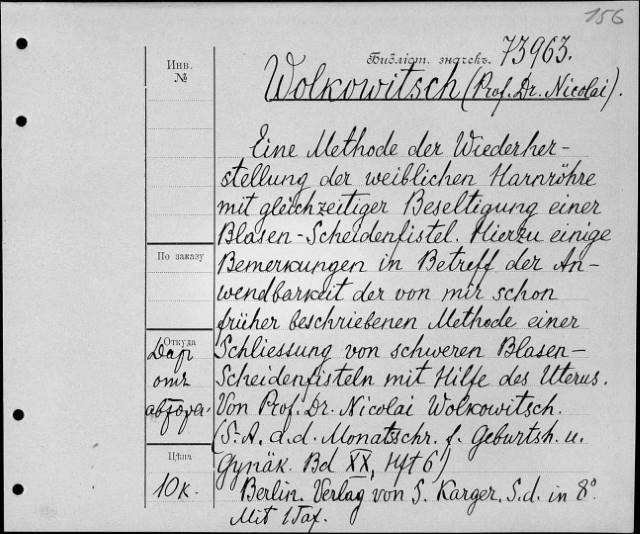 156
Библіот. значекъ. 73963.
Инв. №
Wolkowitsch (Prof. Dr. Nicolai).
Eine Methode der Wiederher-
stellung der weiblichen Harnröhre
mit gleichzeitiger Beseltigung einer
Blasen-Scheidenfistel. Hierzu einige
По заказу
Bemerkungen in Betreff der An-
wendbarkeit der von mir schon
früher beschriebenen Methode einer
Откуда
Даръ
отъ
автора.
Schliessung von schweren Blasen-
Scheidenfisteln mit Hilfe des Uterus.
Von Prof. Dr. Nicolai Wolkowitsch.
(S.-A. a. d. Monatschr. f. Geburtsh. u.
Цѣна
10 к.
Gynäk. Bd XX, Hft 6)
Berlin. Verlag von S. Karger. S.d. in 8°.
Mit 1 Taf.